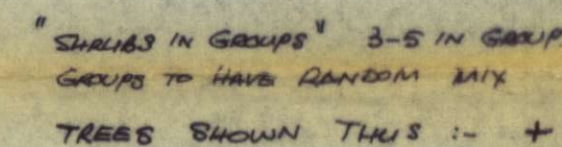 "SHRUBS IN GROUPS" 3-5 IN GROUP
GROUPS TO HAVE RANDOM MIX
TREES SHOWN THUS :- +